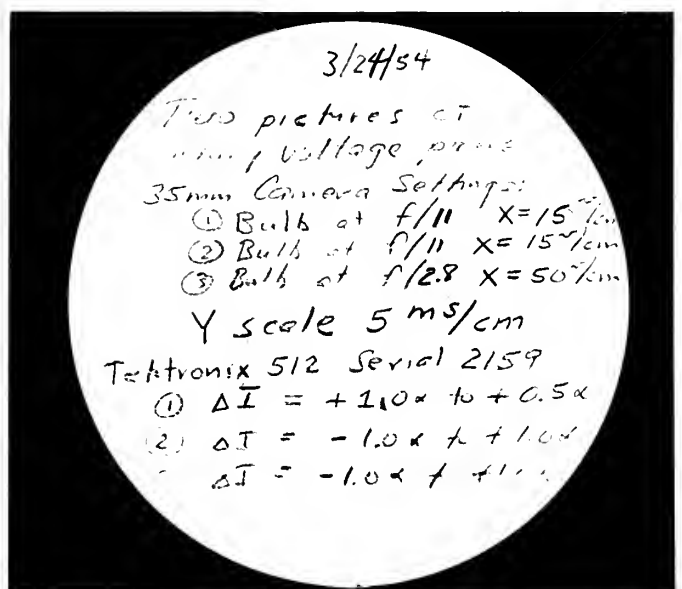 3/24/54
Two pictures of
voltage
35mm Camera Settings:
① Bulb at f/11 X=15
② Bulb at f/11 X=15 /cm
③ Bulb at f/2.8 X=50 /cm
Y scale 5 ms/cm
Tektronix 512 Serial 2159
① ΔI = +1.0α to +0.5α
② ΔI = -1.0α to +1.0α
ΔI = -1.0α